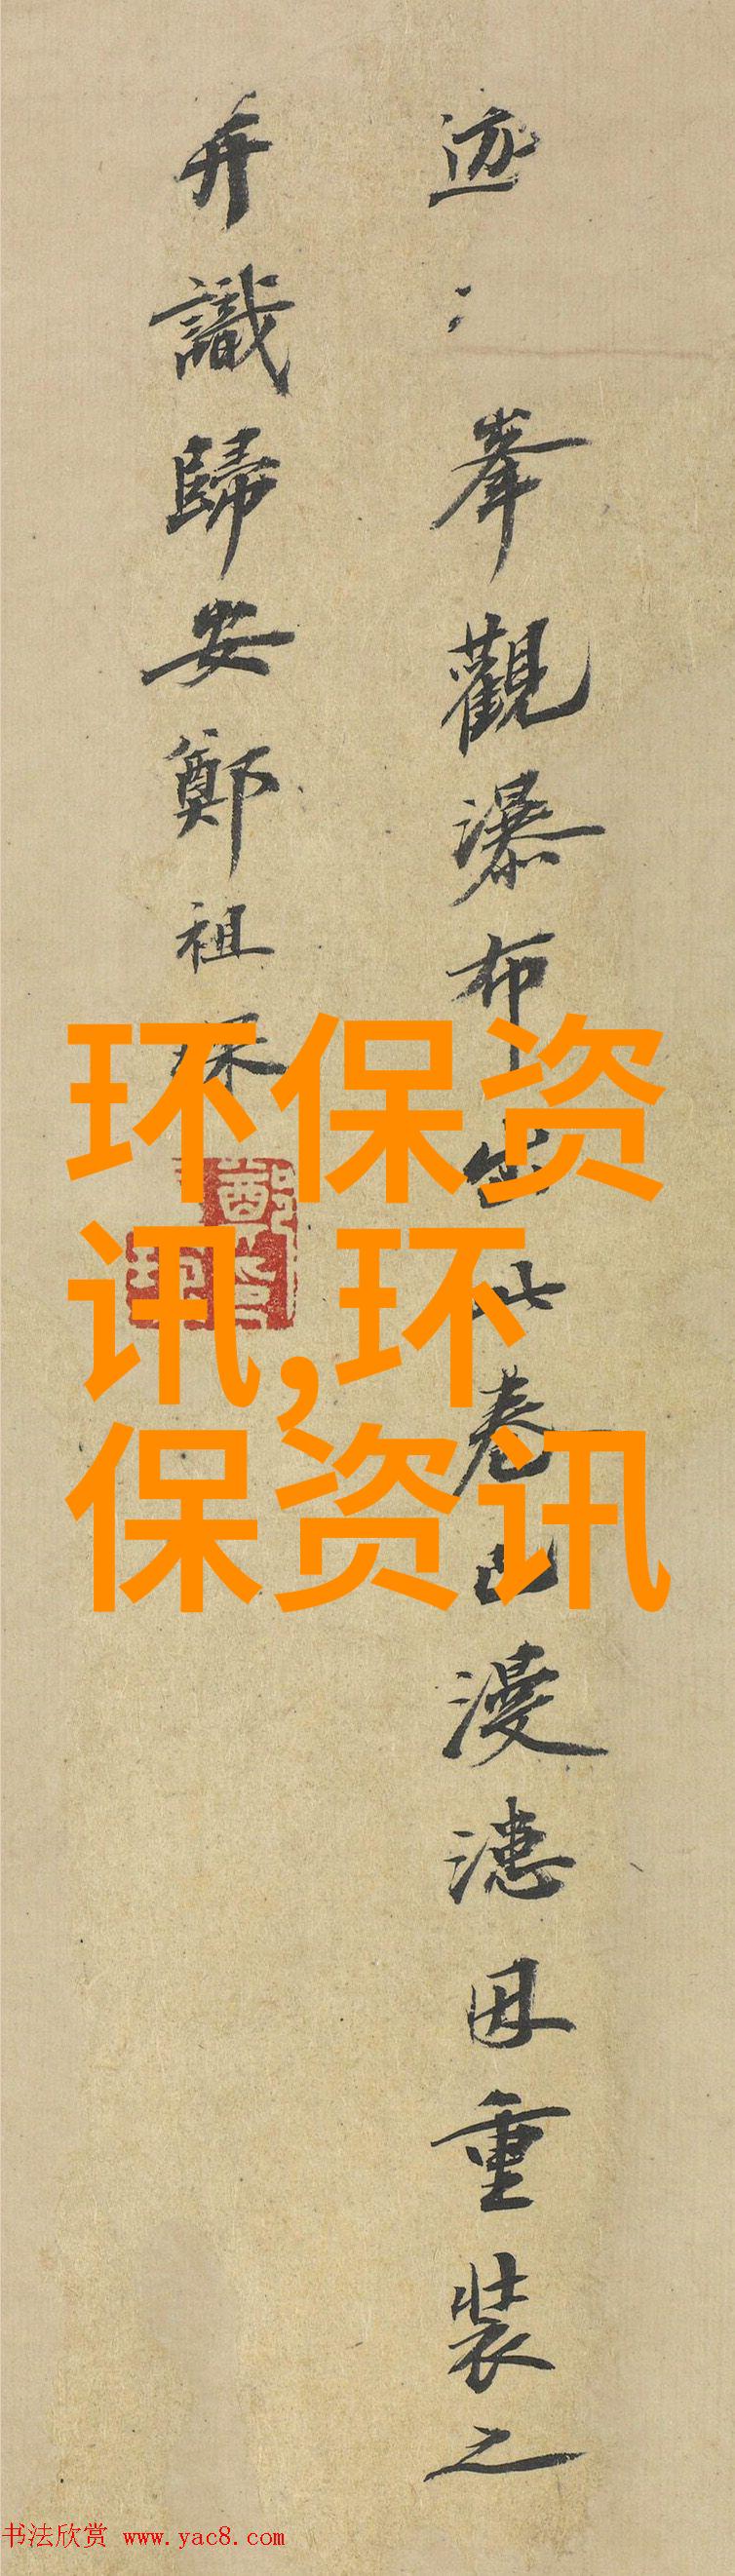 峯觀瀑布此卷已漫漶因重裝之
并識歸安鄭祖琛
环保资
讯,环
保资讯
书法欣赏 www.yac8.com